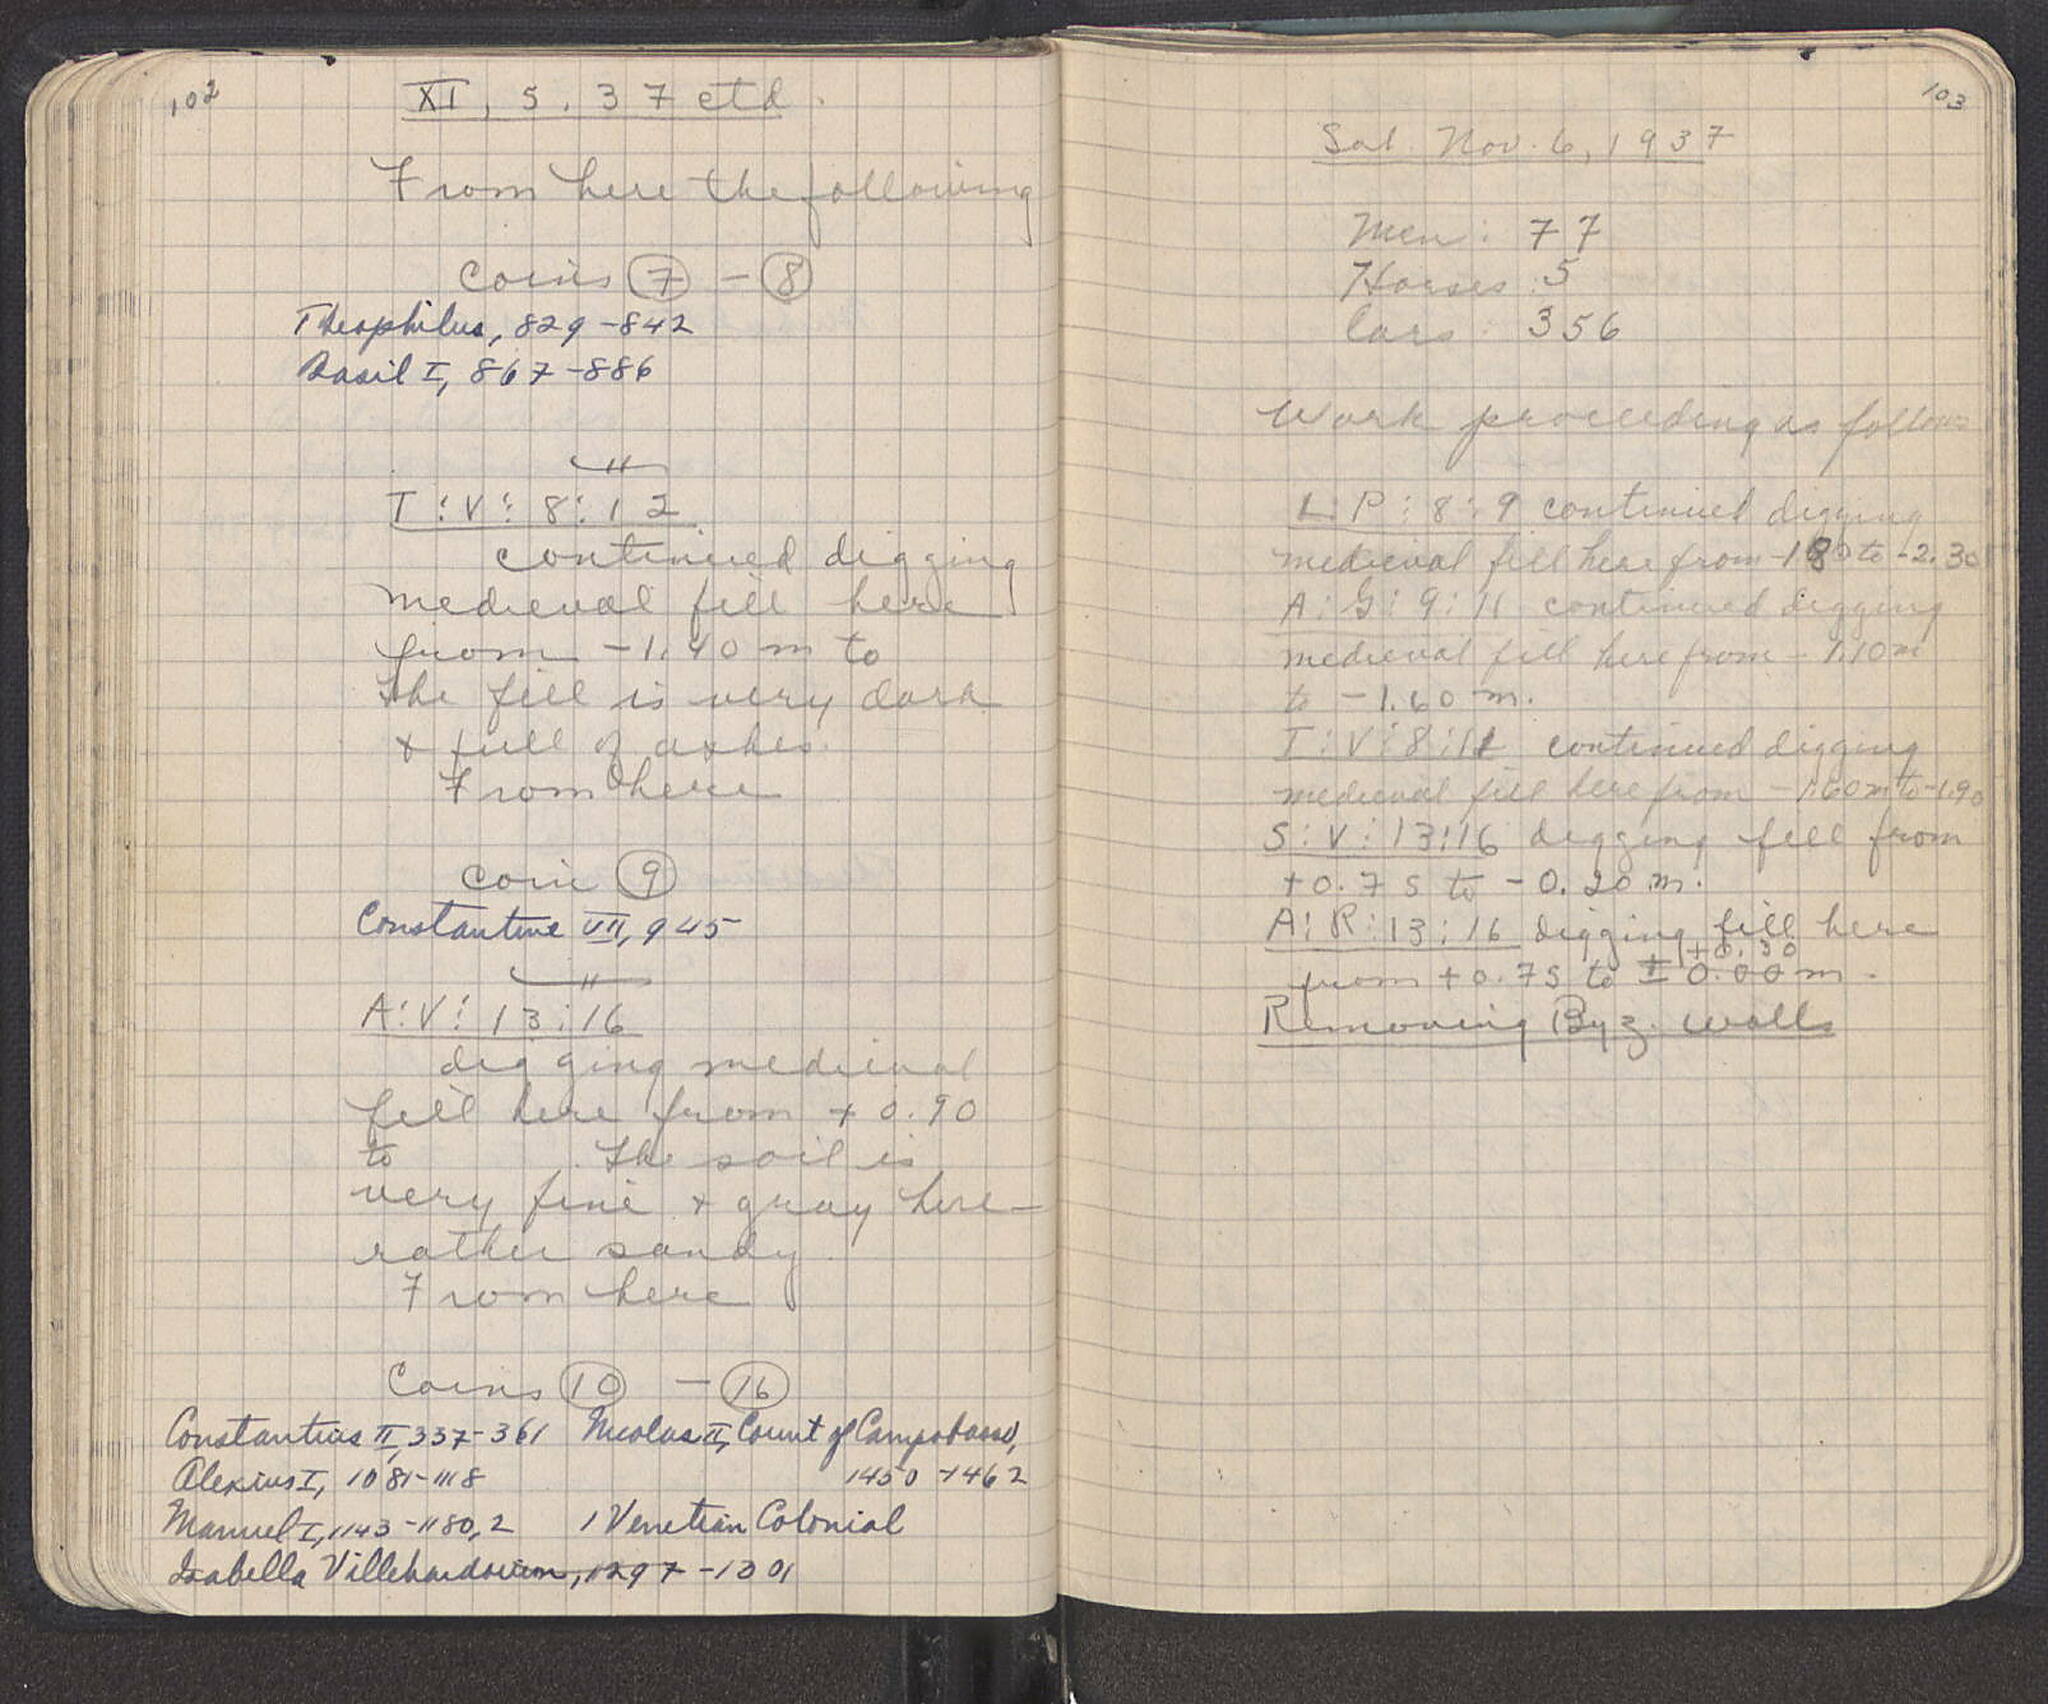 102
XI, 5. 37 ctd.
From here the following
Coins 7 - 8
Theophilus, 829-842
Basil I, 867-886
"
T:V: 8:12
continued digging
medieval fill here
from -1.40 m to
The fill is very dark
+ full of ashes.
From here
Coin 9
Constantine VII, 945
"
A:V: 13:16
digging medieval
fill here from +0.90
to . The soil is
very fine + gray here -
rather sandy.
From here
Coins 10 - 16
Constantius II, 337-361 Nicolas II, Count of Campobasso,
Alexius I, 1081-1118 1450-1462
Manuel I, 1143-1180, 2 1 Venetian Colonial
Isabella Villehardouin, 1297-1301
103
Sat. Nov. 6, 1937
Men: 77
Horses: 5
Cars: 356
Work proceeding as follows
L:P:8:9 continued digging
medieval fill here from -1.80 to -2.30
A:G:9:11 continued digging
medieval fill here from -1.10 m
to -1.60 m.
T:V:8:11 continued digging
medieval fill here from -1.60 m to -1.90
S:V:13:16 digging fill from
+0.75 to -0.20 m.
A:R:13:16 digging fill here
+0.30
from +0.75 to ± 0.00 m.
Removing Byz. walls